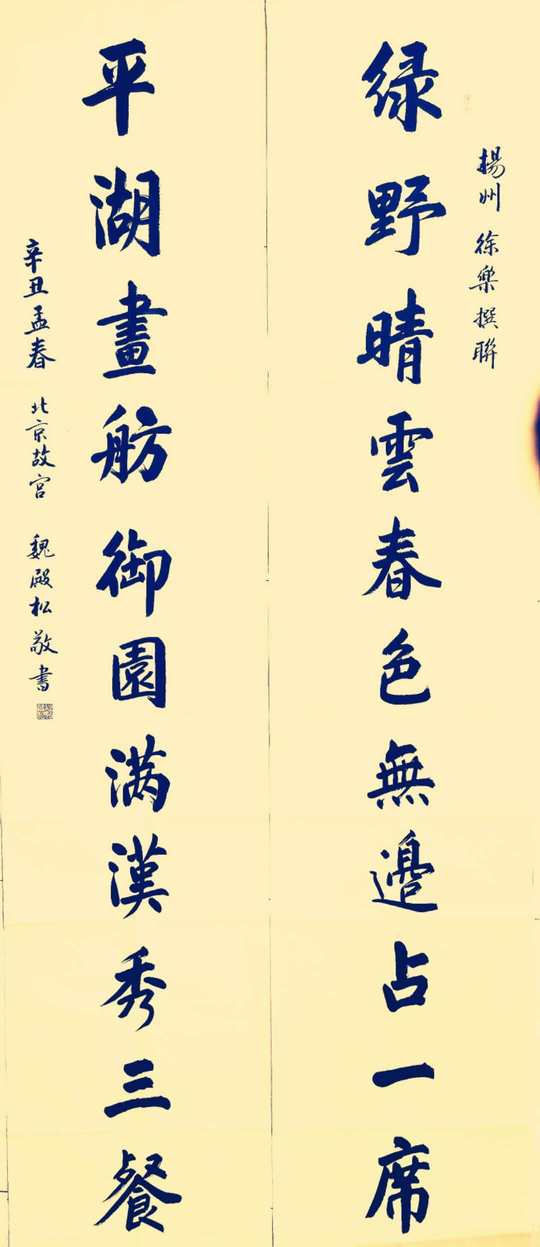 揚州 徐樂撰聯
绿野晴雲春色無邊占一席
平湖畫舫御園满漢秀三餐
辛丑孟春 北京故宫 魏殿松敬書